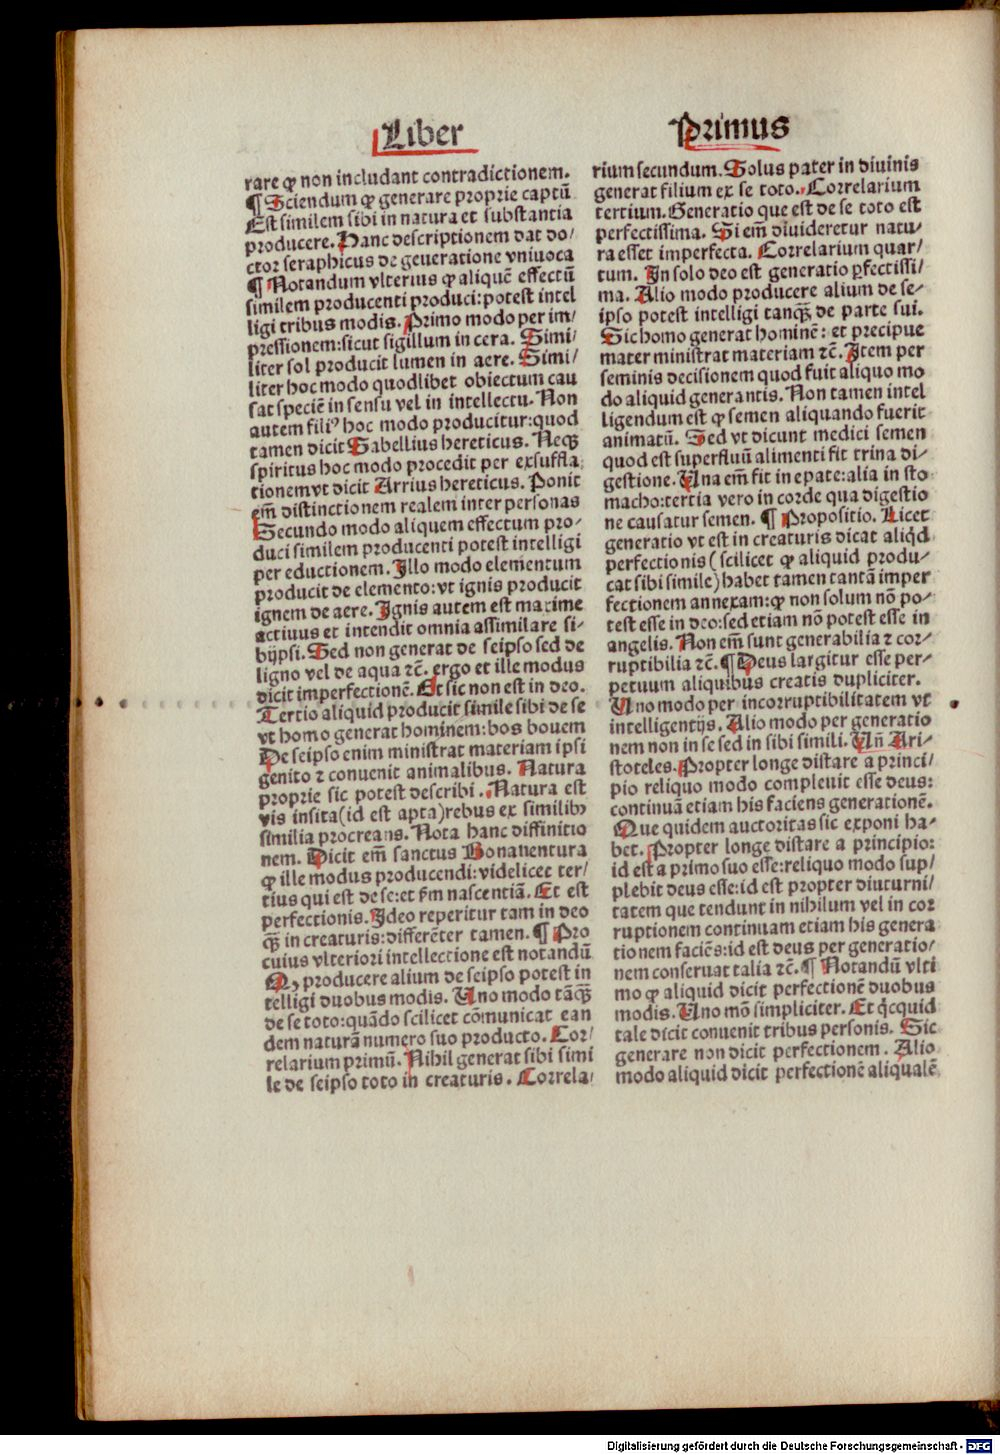 Liber
Primus
rare ꝙ non includant contradictionem.
¶ Sciendum ꝙ generare proprie captū
Est similem sibi in natura et substantia
producere. Hanc descriptionem dat do/
ctor seraphicus de geueratione vniuoca
¶ Notandum vlterius ꝙ aliquē effectū
similem producenti produci: potest intel
ligi tribus modis. Primo modo per im/
pressionem: sicut sigillum in cera. Simi/
liter sol producit lumen in aere. Simi/
liter hoc modo quodlibet obiectum cau
sat speciē in sensu vel in intellectu. Non
autem filiꝰ hoc modo producitur: quod
tamen dicit Sabellius hereticus. Neqꝫ
spiritus hoc modo procedit per exsuffla
tionem vt dicit Arrius hereticus. Ponit
em̄ distinctionem realem inter personas
Secundo modo aliquem effectum pro/
duci similem producenti potest intelligi
per eductionem. Illo modo elementum
producit de elemento: vt ignis producit
ignem de aere. Ignis autem est maxime
actiuus et intendit omnia assimilare si/
bijpsi. Sed non generat de seipso sed de
ligno vel de aqua ⁊c̄. ergo et ille modus
dicit imperfectionē. Et sic non est in deo.
Tertio aliquid producit simile sibi de se
vt homo generat hominem: bos bouem
De seipso enim ministrat materiam ipsi
genito ⁊ conuenit animalibus. Natura
proprie sic potest describi. Natura est
vis insita (id est apta) rebus ex similibꝫ
similia procreans. Nota hanc diffinitio
nem. Dicit em̄ sanctus Bonauentura
ꝙ ille modus producendi: videlicet ter/
tius qui est de se: et ẜm nascentiā. Et est
perfectionis. Ideo reperitur tam in deo
qꝫ̄ in creaturis: differēter tamen. ¶ Pro
cuius vlteriori intellectione est notandū
Qꝫ producere alium de seipso potest in
telligi duobus modis. Uno modo tāqꝫ̄
de se toto: quādo scilicet cōmunicat ean
dem naturā numero suo producto. Cor/
relarium primū. Nihil generat sibi simi
le de seipso toto in creaturis. Correla/
rium secundum. Solus pater in diuinis
generat filium ex se toto. Correlarium
tertium. Generatio que est de se toto est
perfectissima. Si em̄ diuideretur natu/
ra esset imperfecta. Correlarium quar/
tum. In solo deo est generatio ꝑfectissi/
ma. Alio modo producere alium de se/
ipso potest intelligi tanqꝫ̄ de parte sui.
Sic homo generat hominē: et precipue
mater ministrat materiam ⁊c̄. Item per
seminis decisionem quod fuit aliquo mo
do aliquid generantis. Non tamen intel
ligendum est ꝙ semen aliquando fuerit
animatū. Sed vt dicunt medici semen
quod est superfluū alimenti fit trina di/
gestione. Una em̄ fit in epate: alia in sto
macho: tertia vero in corde qua digestio
ne causatur semen. ¶ Propositio. Licet
generatio vt est in creaturis dicat aliqͥd
perfectionis (scilicet ꝙ aliquid produ/
cat sibi simile) habet tamen tantā imper
fectionem annexam: ꝙ non solum nō po/
test esse in deo: sed etiam nō potest esse in
angelis. Non em̄ sunt generabilia ⁊ cor/
ruptibilia ⁊c̄. ¶ Deus largitur esse per/
petuum aliquibus creatis dupliciter.
Uno modo per incorruptibilitatem vt
intelligentijs. Alio modo per generatio
nem non in se sed in sibi simili. Un̄ Ari/
stoteles. Propter longe distare a princi/
pio reliquo modo compleuit esse deus:
continuā etiam his faciens generationē.
Que quidem auctoritas sic exponi ha/
bet. Propter longe distare a principio:
id est a primo suo esse: reliquo modo sup/
pleuit deus esse: id est propter diuturni/
tatem que tendunt in nihilum vel in cor
ruptionem continuam etiam his genera
tionem faciēs: id est deus per generatio/
nem conseruat talia ⁊c̄. ¶ Notandū vlti
mo ꝙ aliquid dicit perfectionē duobus
modis. Uno mō simpliciter. Et qͥcquid
tale dicit conuenit tribus personis. Sic
generare non dicit perfectionem. Alio
modo aliquid dicit perfectionē aliqualē
Digitalisierung gefördert durch die Deutsche Forschungsgemeinschaft - DFG